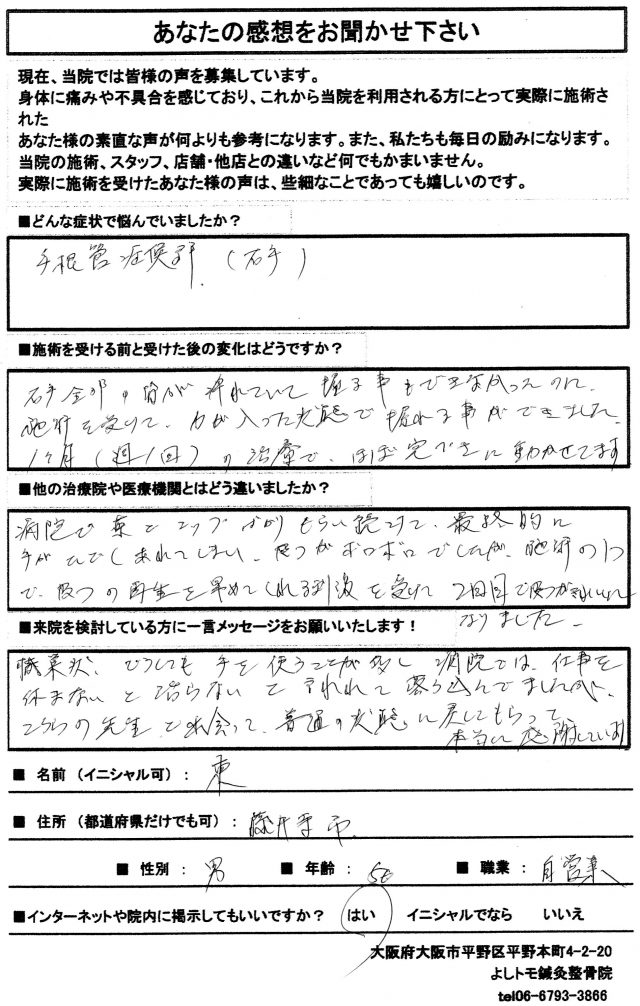 あなたの感想をお聞かせ下さい
現在、当院では皆様の声を募集しています。
身体に痛みや不具合を感じており、これから当院を利用される方にとって実際に施術さ
れた
あなた様の素直な声が何よりも参考になります。また、私たちも毎日の励みになります。
当院の施術、スタッフ、店舗・他店との違いなど何でもかまいません。
実際に施術を受けたあなた様の声は、些細なことであっても嬉しいのです。
■どんな症状で悩んでいましたか？
手根管症候群（右手）
■施術を受ける前と受けた後の変化はどうですか？
右手全部の筋が 腫れていて 握る事もできなかったのに、
施術を受けて、力が入った状態で 握れる事ができました。
1ヶ月（週1回）の治療で、ほぼ完ぺきに動かせてます
■他の治療院や医療機関とはどう違いましたか？
病院で薬とシップばかりもらい続けて、最終的に
手が しまい、皮フがボロボロでしたが、施術の1つ
で、皮フの再生を早めてくれる刺激を受けて 2回目で皮フがきれいに
なりました。
■来院を検討している方に一言メッセージをお願いいたします！
職業柄、どうしても手を使うことが多く 病院では、仕事を
休まないと治らないと言われて落ち込んでましたが、
こちらの先生と出会って、普通の状態に戻してもらって
本当に感謝しています
■ 名前（イニシャル可）： 東
■ 住所（都道府県だけでも可）： 藤井寺市
■ 性別： 男 ■ 年齢： 50 ■ 職業： 自営業
■インターネットや院内に掲示してもいいですか？ はい イニシャルでなら いいえ
大阪府大阪市平野区平野本町4-2-20
よしトモ鍼灸整骨院
tel06-6793-3866